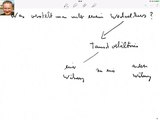 Was versteht man unter einem Wechselkurs?
Tauschverhältnis
einer zu einer anderen
Währung Währung